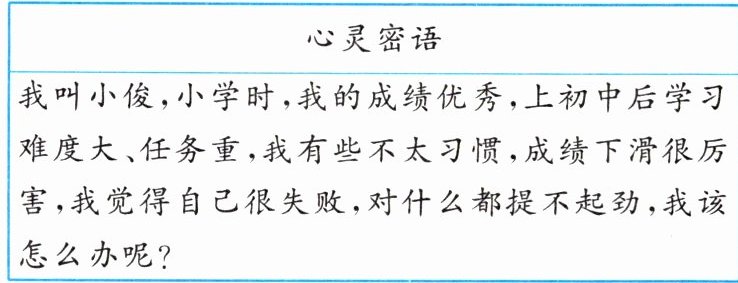 心灵密语
我叫小俊,小学时,我的成绩优秀,上初中后学习
难度大、任务重,我有些不太习惯,成绩下滑很厉
害,我觉得自己很失败,对什么都提不起劲,我该
怎么办呢?